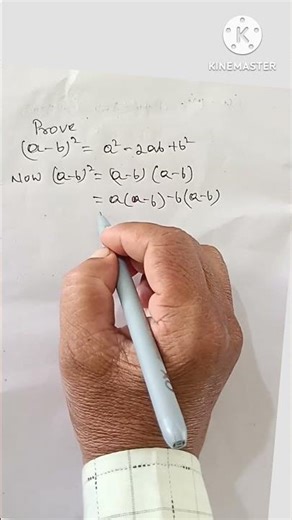 KINEMASTER
Prove
(a-b)² = a² - 2ab + b²
Now (a-b)² = (a-b) (a-b)
= a(a-b) - b(a-b)